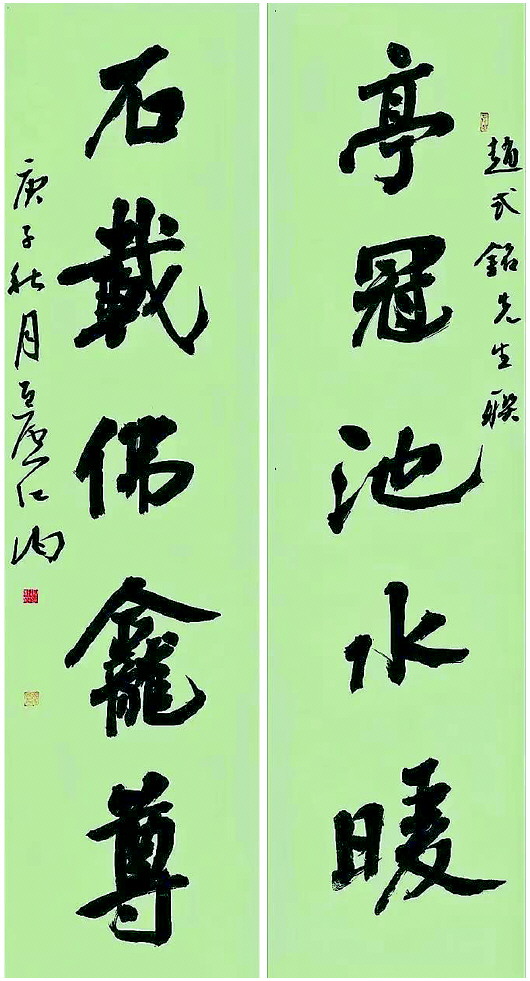 趙式銘先生聯
亭冠池水暖
石載佛龕尊
庚子秋月